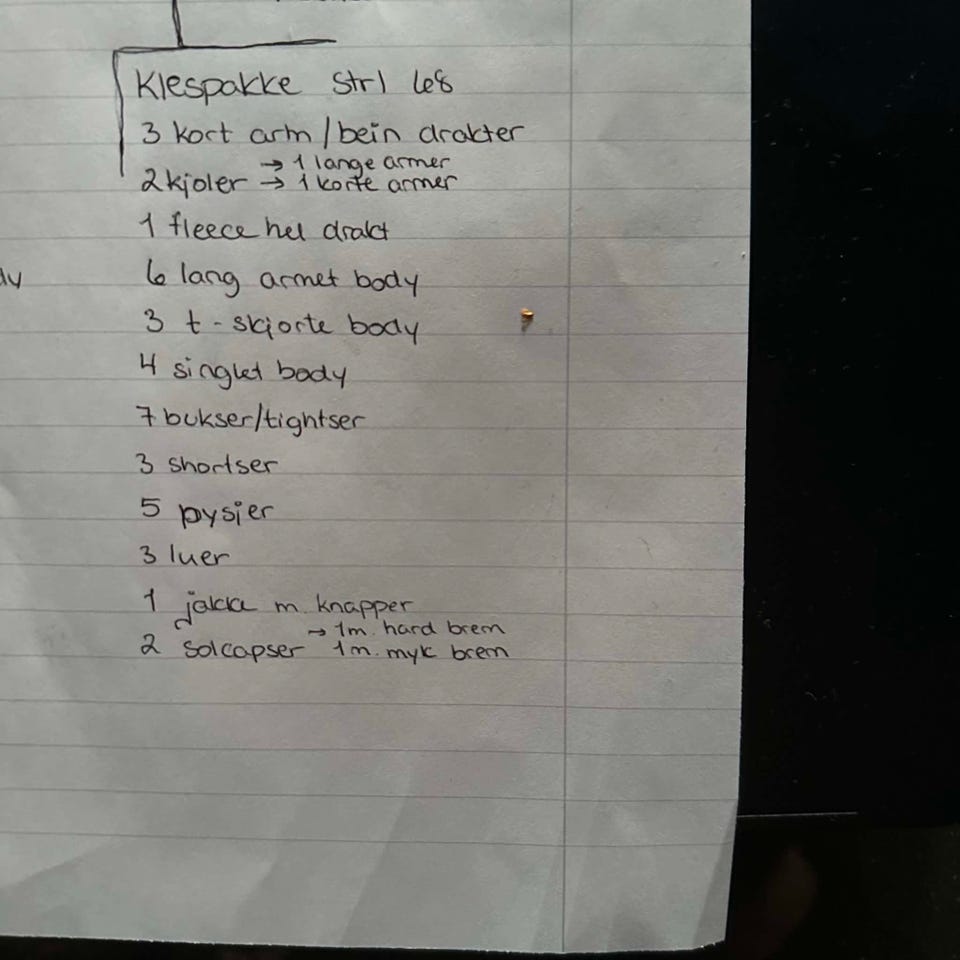 Klespakke Strl 68
3 kort arm/bein drakter
→ 1 lange armer
2 kjoler → 1 korte armer
1 fleece hel drakt
6 lang armet body
3 t-skjorte body
4 singlet body
7 bukser/tightser
3 shortser
5 pysjer
3 luer
1 jakka m. knapper
→ 1m. hard brem
2 Solcapser 1m. myk brem